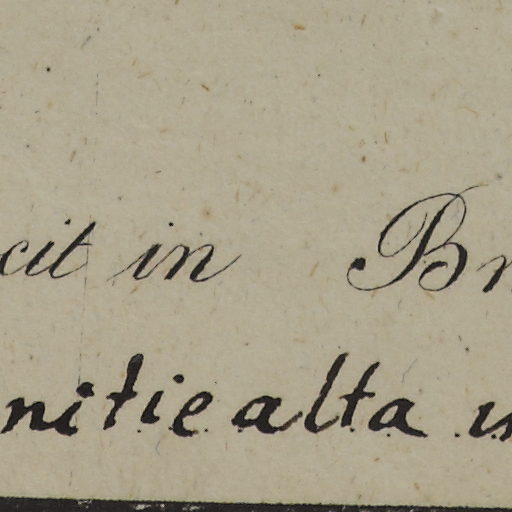 cit in Br
nitie alta u